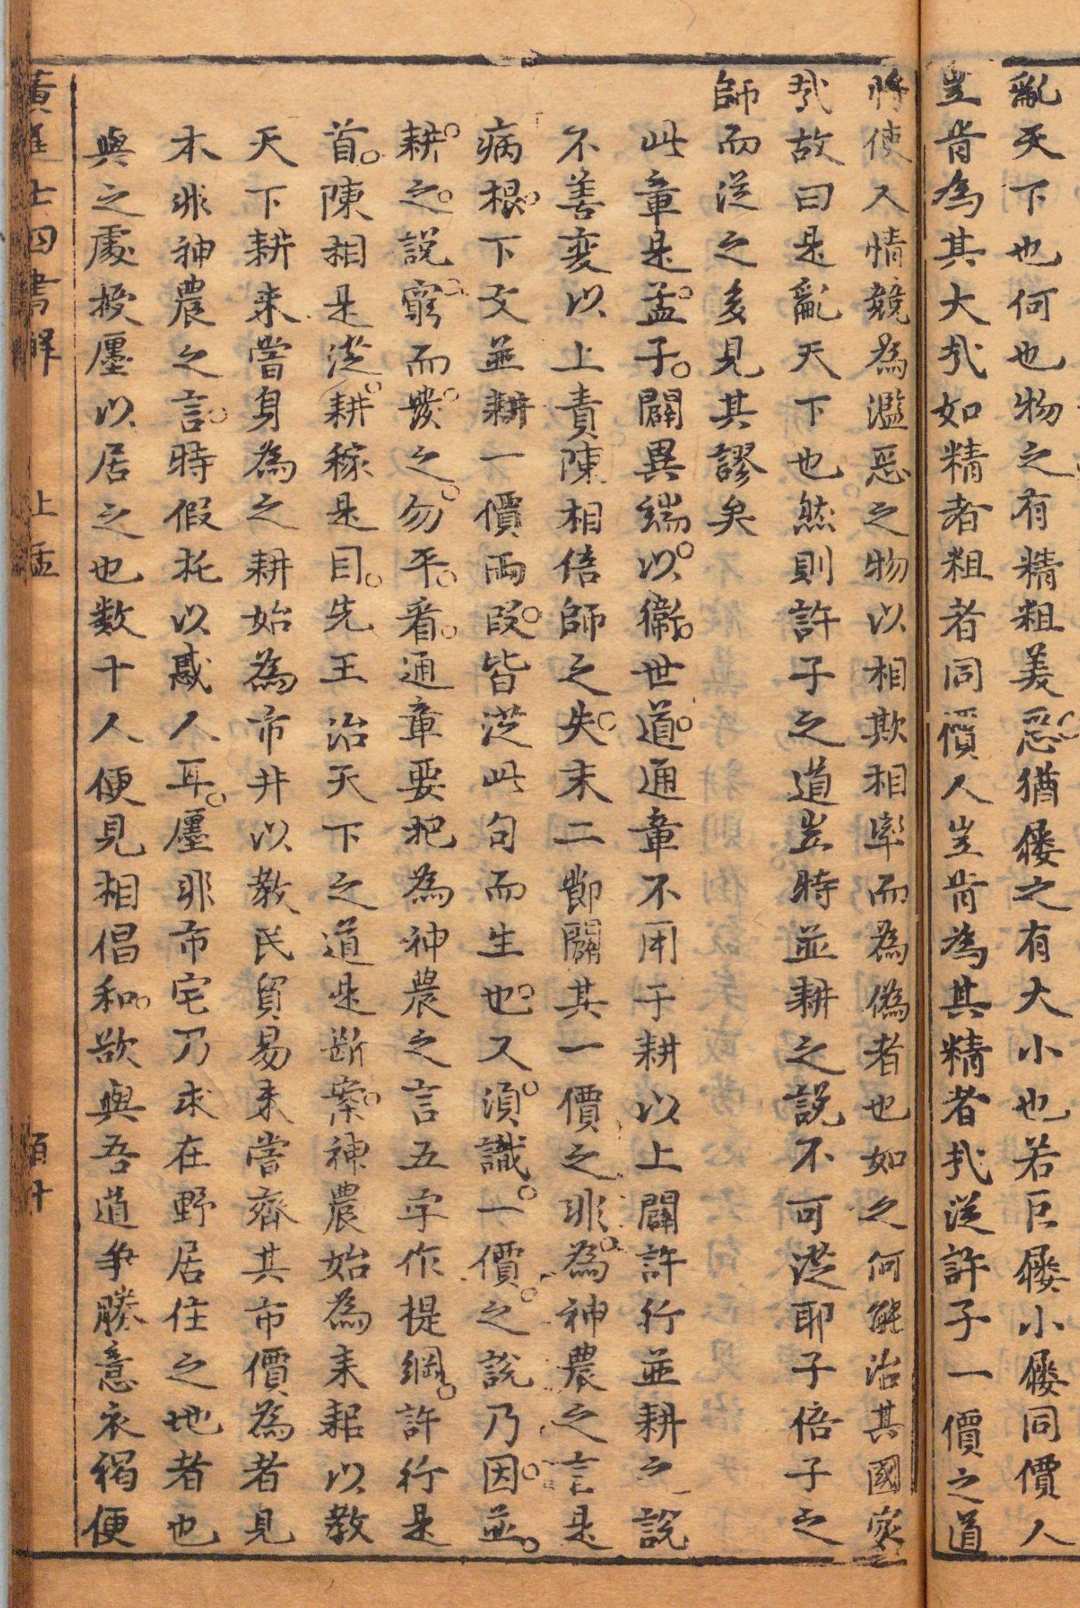 亂天下也何也物之有精粗美惡猶屨之有大小也若巨屨小屨同價人
豈肯為其大㦲如精者粗者同價人豈肯為其精者㦲從許子一價之道
將使人情競為濫惡之物以相欺相率而為偽者也如之何能治其國家
㦲故曰是亂天下也然則許子之道豈特並耕之說不可從耶子倍子之
師而從之多見其謬矣
此章是孟子闢異端以衛世道通章不用于耕以上闢許行並耕之說
不善变以上責陳相倍師之失末二節闢其一價之非為神農之言是
病根下文並耕一價兩段皆從此句而生也又須識一價之說乃因並
耕之說窮而發之勿平看通章要把為神農之言五字作提綱許行是
首陳相是從耕稼是目先王治天下之道是斷案神農始為耒耜以教
天下耕未嘗身為之耕始為市井以教民貿易未嘗齊其市價為者見
本非神農之言特假托以惑人耳廛非市宅乃求在野居住之地者也
與之處授廛以居之也数十人便見相倡和欲與吾道爭勝意衣褐便
黃進士四書解 上孟